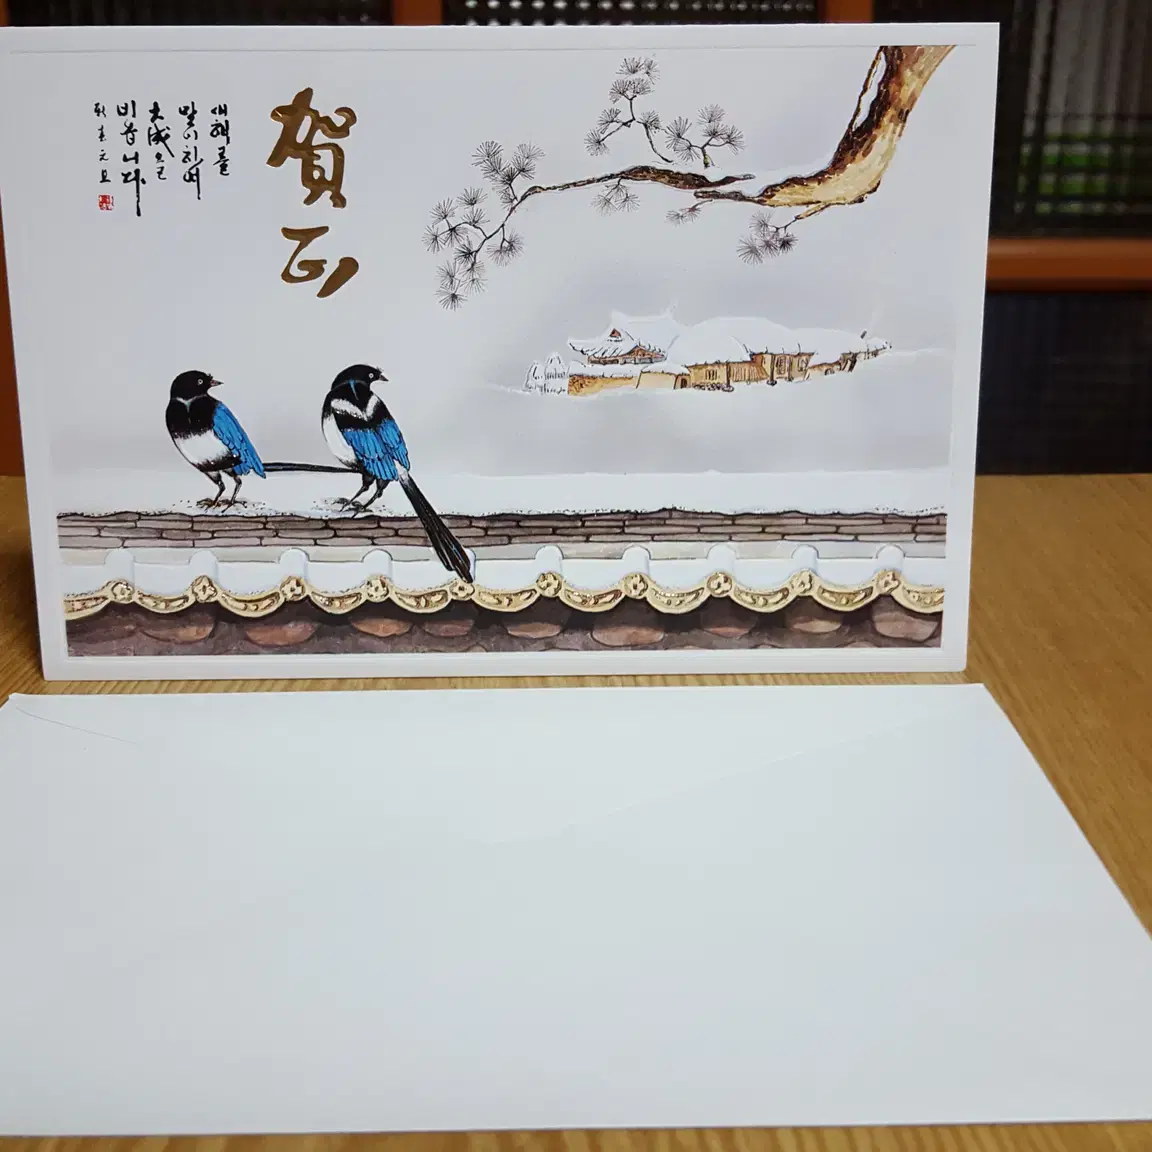 賀正
새해를
맞이하여
大成으로
비옵니다
元旦